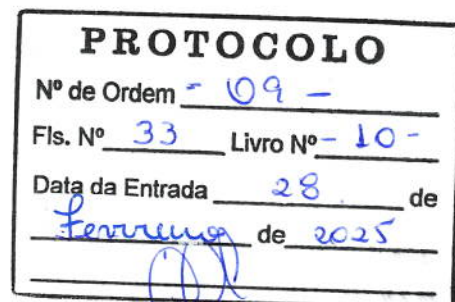 PROTOCOLO
Nº de Ordem - 09 -
Fls. Nº 33 Livro Nº - 10 -
Data da Entrada 28 de
Fevereiro de 2025